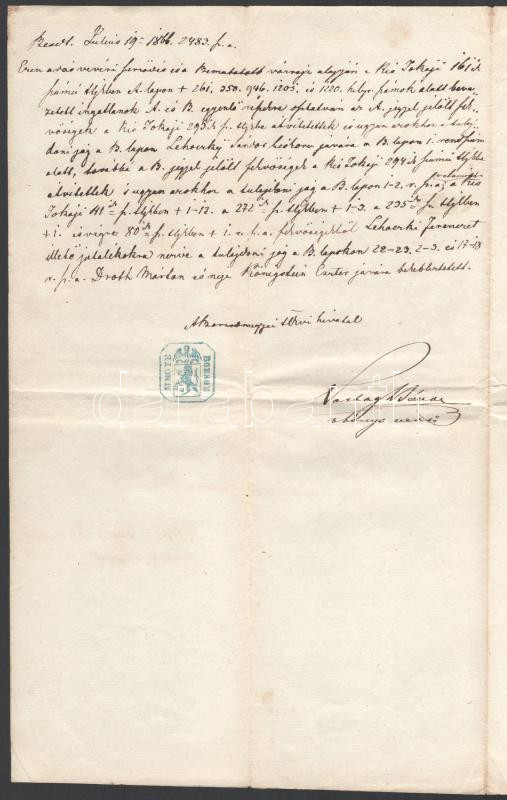 Július 19én 1866. 2483. p. a.
Ezen adás vevési szerződés és a Bemutatott vázrajz alapján a Kis Tokaji 161ik
számú tljkvben A. lapon + 261. 350. 946. 1203. és 1220. helyr. számok alatt beve-
zetett ingatlanok A. és B. egyenlő részekre osztatván az A. jeggyel jelölt fek-
vőségek a Kis Tokaji 293ik sz. tljkbe átvitettek és ugyan azokhoz a tulaj-
doni jog a B. lapon Lehoczky Sándor javára a B. lapon 1. rendszám
alatt, továbbá a B. jeggyel jelölt fekvőségek a Kis Tokaji 294ik számú tljkbe
átvitettek és ugyan azokhoz a tulajdoni jog a B. lapon 1-2. r. sz. a., a Kis
Tokaji 41ik sz. tljkben + 1-12. a 272ik sz. tljkben + 1-3. a 235ik sz. tljkben
+ 1. és végre 80ik sz. tljkben + 1. r. sz. a. fekvőségekből Lehoczky Ferenczet
illető jutalékokra nézve a tulajdoni jog a B. lapokon 22-23. 2-3. és 17-18
r. sz. a. Droth Márton és neje Königstein Eszter javára bekebleztetett.
A Borsodmegyei tkvi hivatal
BORSOD
darabanth